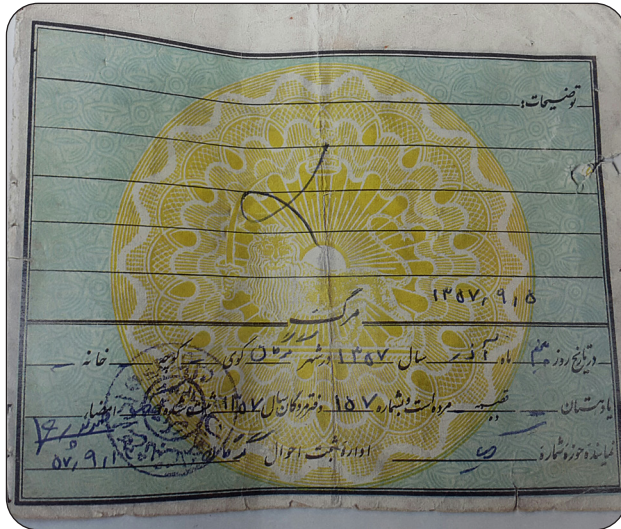 توضیحات:
۱۳۵۷،۹،۵
مرگ
در تاریخ روز پنجم ماه آذر سال ۱۳۵۷ در شهر گرگان کوی کوچه خانه
یا دهستان قصبه ده مرده است و بشماره ۱۵۷ دفتر مردگان سال ۱۳۵۷ ثبت شده
نماینده حوزه شماره اداره ثبت احوال گرگان
۵۷،۹،۱